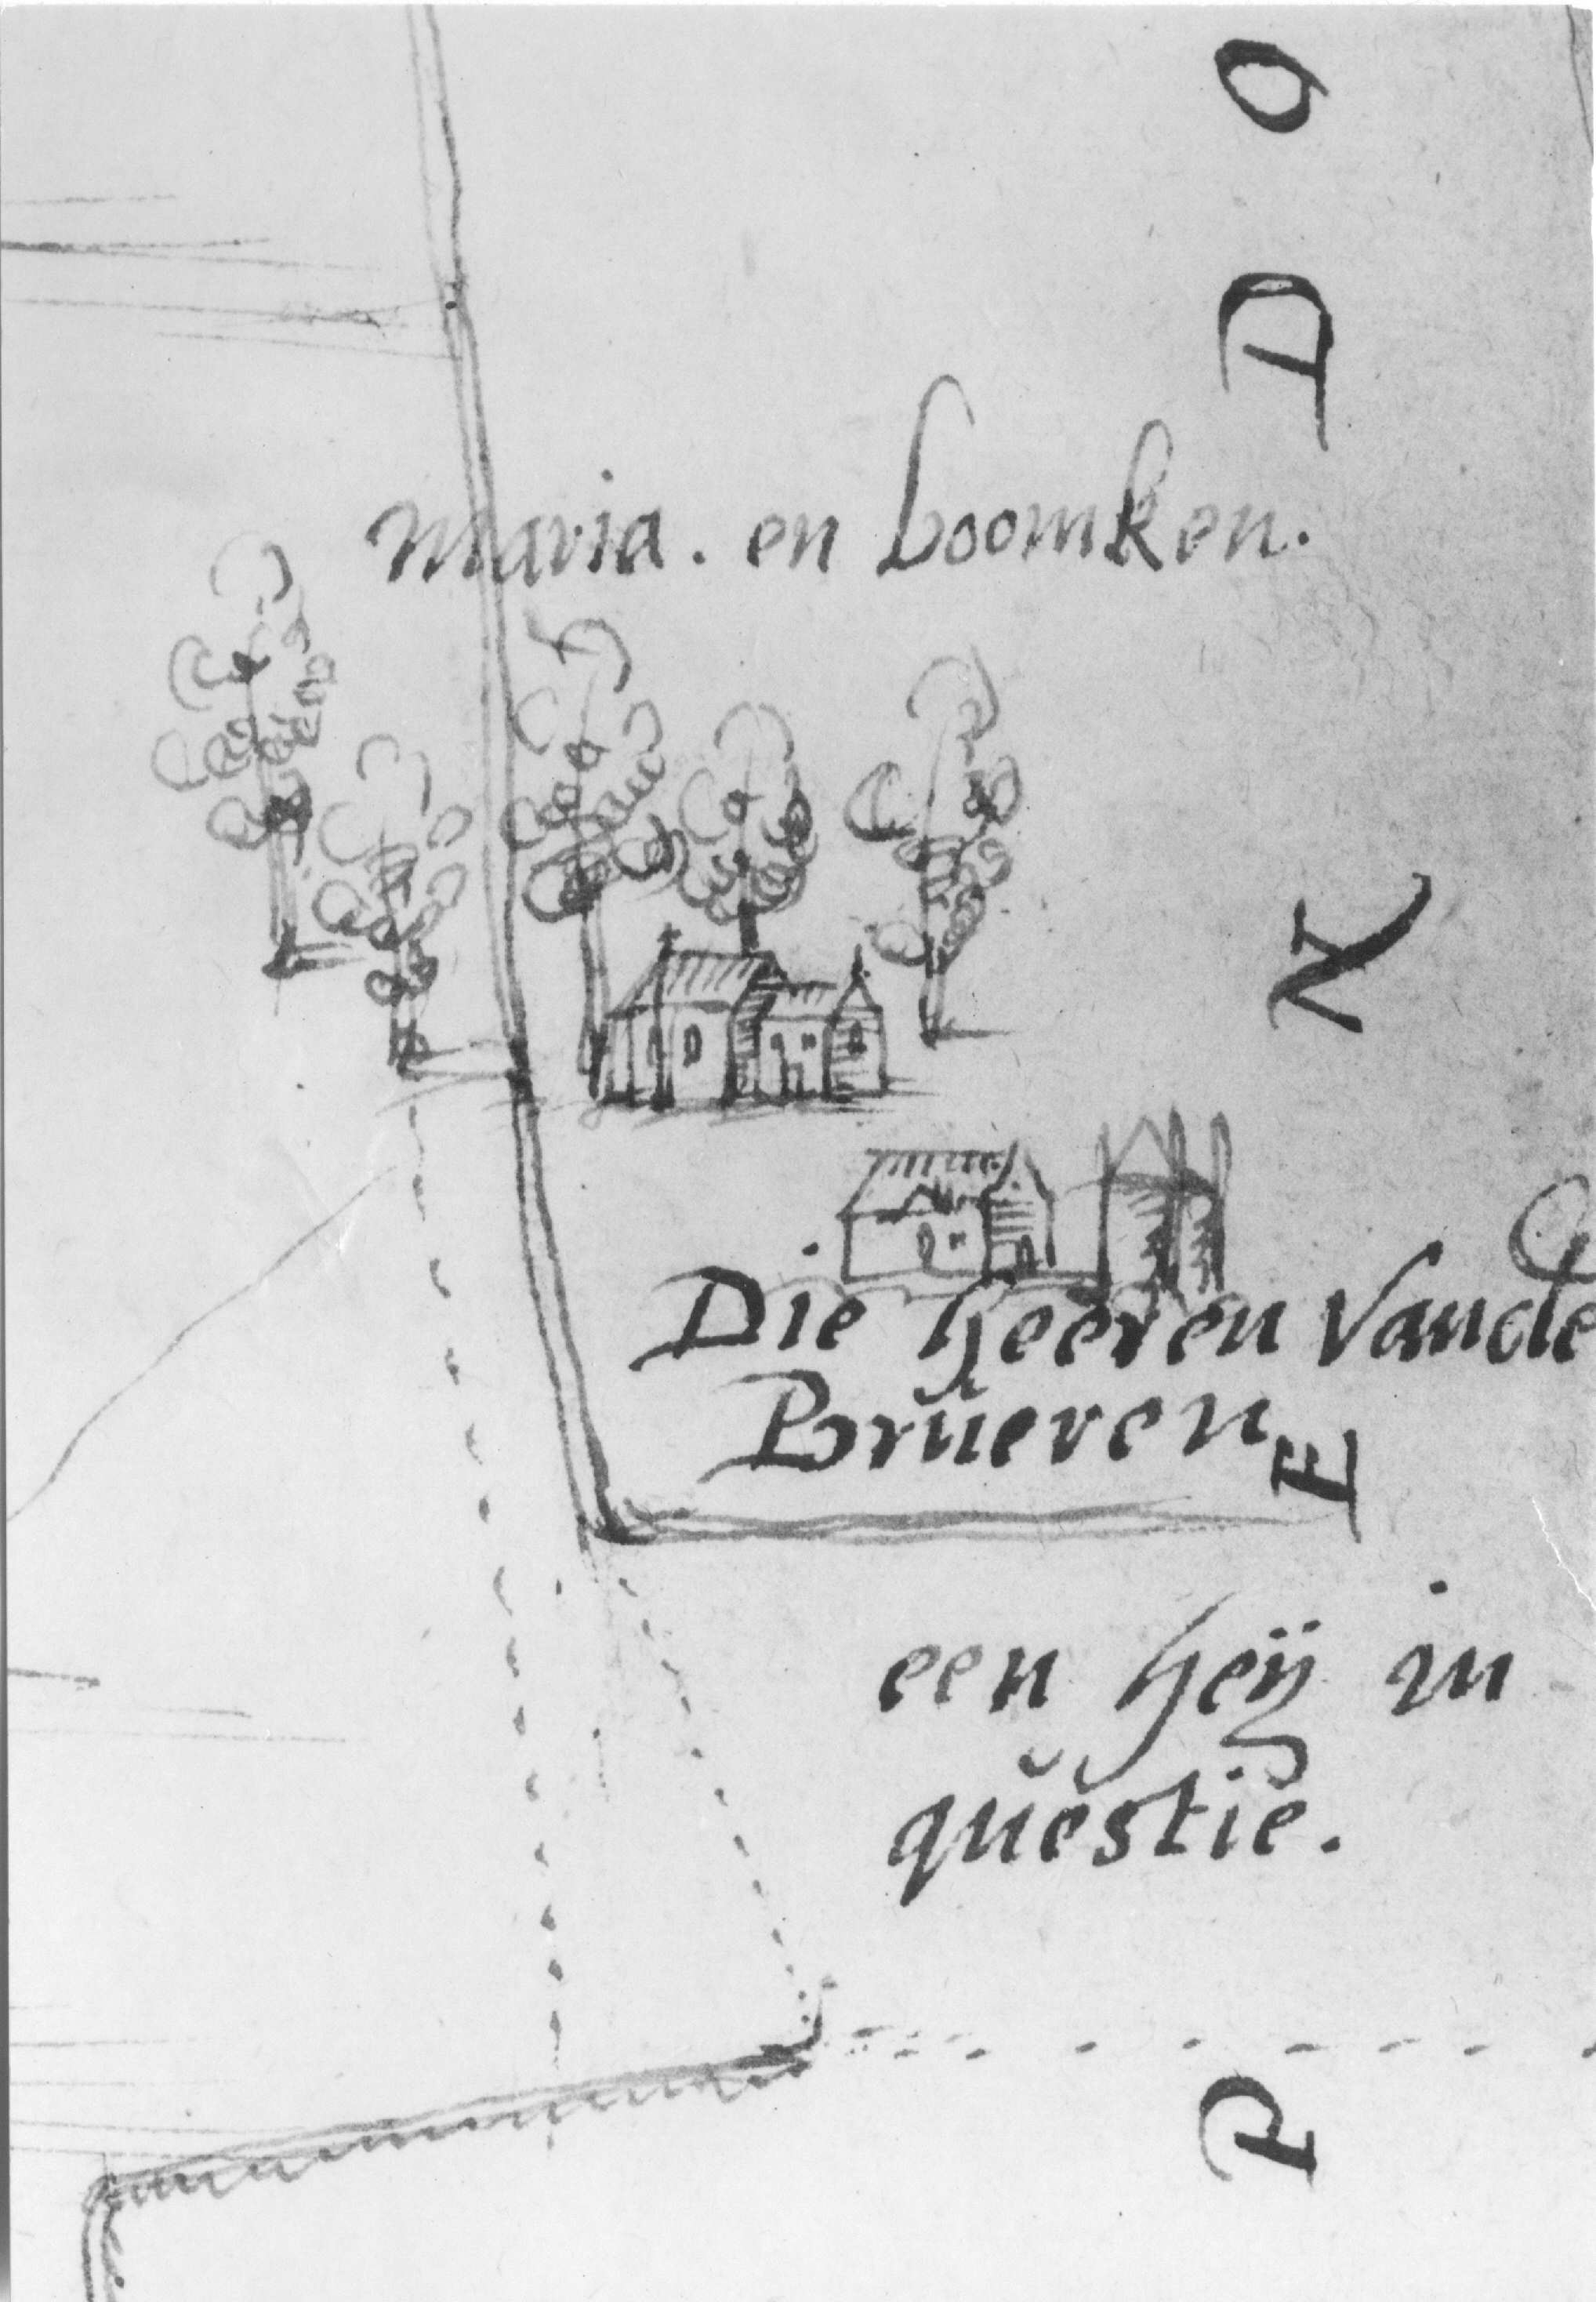 Maria. en boomken.
Die heeren Vande
Brŭeren
een heÿ in
qŭĕstie.
P
E
N
D
O